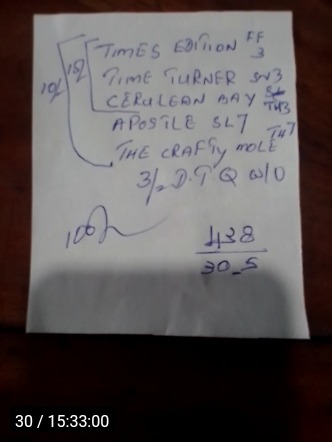 10/ 15/ TIMES EDITION FF 3
TIME TURNER SN3
CERULEAN BAY TH3
APOSTLE SL7
THE CRAFTY MOLE TH7
3/ D.T Q W/O
438
30-5
30 / 15:33:00